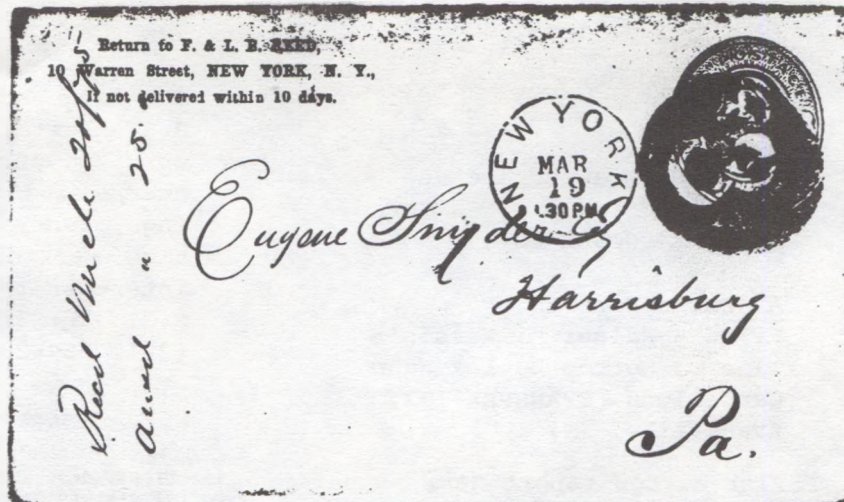 Return to F. & L. B. REED,
10 Warren Street, NEW YORK, N. Y.,
If not delivered within 10 days.
NEW YORK
MAR
19
30 PM
Eugene Snyder Esq
Harrisburg
Pa.
Recd March 20/
ansd " 25